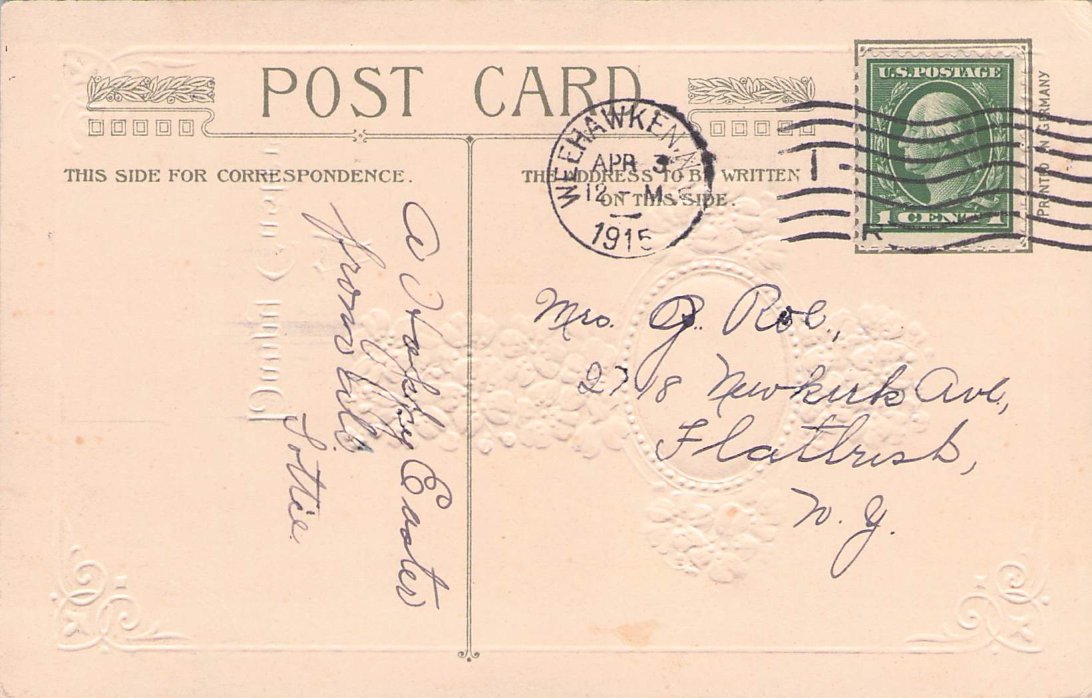 POST CARD
THIS SIDE FOR CORRESPONDENCE.
THE ADDRESS TO BE WRITTEN
ON THIS SIDE.
WEEHAWKEN, N.J.
APR 3
12 - M.
1915
U.S. POSTAGE
1 CENT
PRINTED IN GERMANY
A Happy Easter
from all,
Lottie
Mrs. G. Roe.,
2718 Newkirk Ave,
Flatbush,
N. Y.